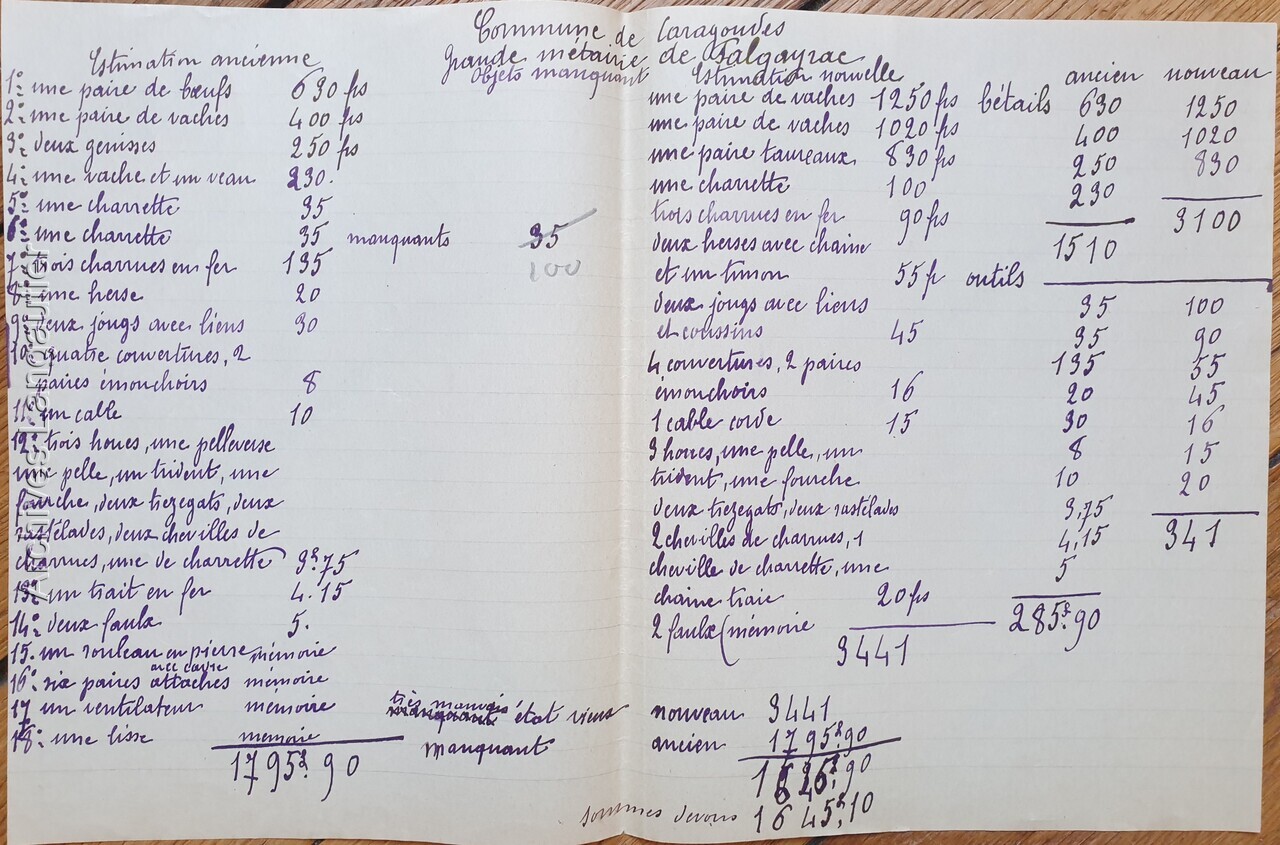 Commune de Caragoudes
Grande métairie de Falgayrac
Estimation ancienne
Objets manquant
1° une paire de bœufs 630 frs
2° une paire de vaches 400 frs
3° deux genisses 250 frs
4° une vache et un veau 230.
5° une charrette 35
6° une charrette 35 manquants 35
100
7° trois charrues en fer 135
8° une herse 20
9° deux jougs avec liens 30
10° quatre couvertures, 2
paires émouchoirs 8
11° un cable 10
12° trois houes, une pelleverse
une pelle, un trident, une
fourche, deux trezegats, deux
rastelades, deux chevilles de
charrues, une de charrette 3f75
13° un trait en fer 4.15
14° deux faulx 5.
15. un rouleau en pierre mémoire
avec cuire
16° six paires attaches mémoire
17 un ventilateur mémoire très mauvais état vieux
18° une lisse memoire manquant
1795f90
Estimation nouvelle
une paire de vaches 1250 frs
une paire de vaches 1020 frs
une paire taureaux 830 frs
une charrette 100
trois charrues en fer 90 frs
deux herses avec chaine
et un timon 55 fr
deux jougs avec liens
et coussins 45
4 couvertures, 2 paires
émouchoirs 16
1 cable corde 15
3 houes, une pelle, un
trident, une fourche
deux trezegats, deux rastelades
2 chevilles de charrues, 1
cheville de charrette, une
chaine traie 20 frs
2 faulx (mémoire
3441
ancien nouveau
bétails 630 1250
400 1020
250 830
230
1510 3100
outils
35 100
35 90
135 55
20 45
30 16
8 15
10 20
3,75 341
4,15
5
285f.90
nouveau 3441
ancien 1795f.90
1626f.90
sommes devons 1645f.10
Archives Langautier